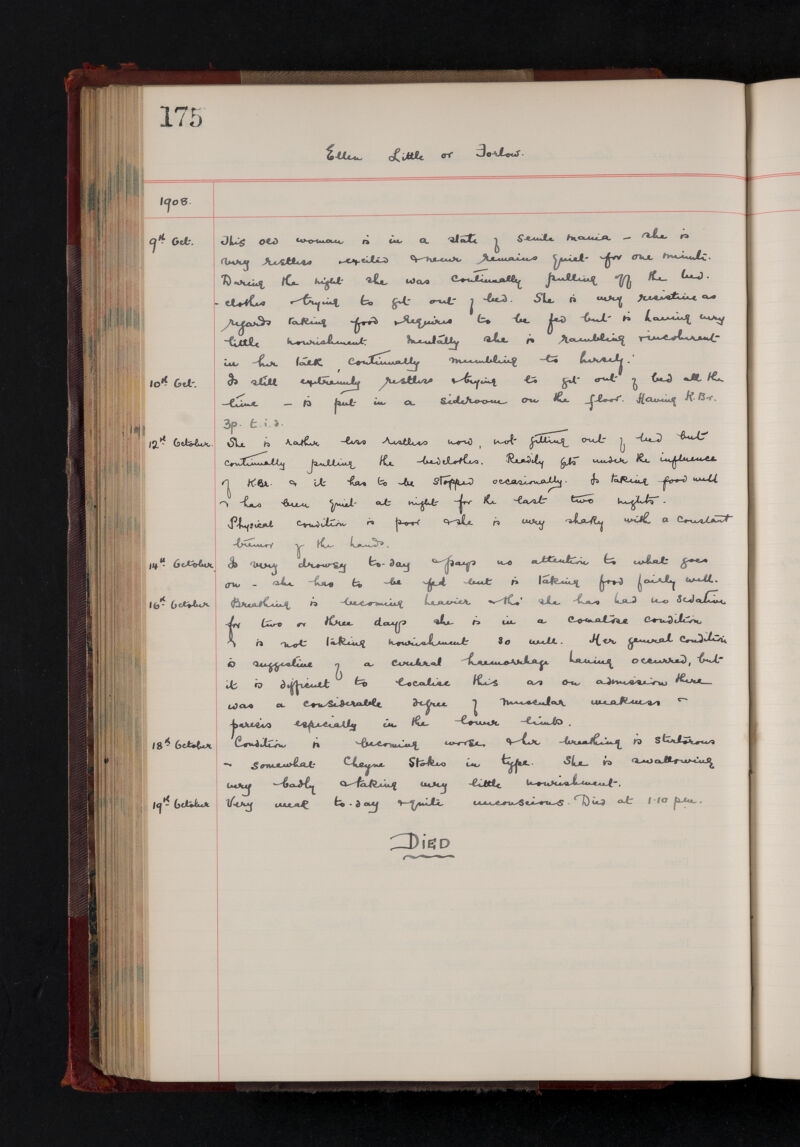 175
Ellen Little or Forlow.
1908.
9th Oct. This old woman is in a state of senile mania - she is
very restless & excited & never remains quiet for one minute.
During the night she was continually pulling off the bed-
- clothes & trying to get out of bed. She is very resistive as
regards taking food & requires to be fed but is having very
little nourishment. Mentally she is rambling & incoherent
in her talk, continually mumbling to herself.
10th Oct. Is still extremely restless & trying to get out of bed all the
time - is put in a sideroom on the floor. Having K.Br.
t.i.d.
12th October. She is rather less restless now, not getting out of bed but
continually pulling the bedclothes. Readily gets under the influence
of KBr. & it has to be stopped occasionally. Is taking food well
& has been quiet at night for the last two nights.
Physical condition is poor & she is very shaky with a constant
tremor of the hands.
14th October. Is very drowsy to-day & pays no attention to what goes
on - she has to be fed but is taking food fairly well.
16th October Breathing is becoming heavier & tho' she has had no sedative
for two or three days she is in a comatose condition
& is not taking nourishment so well. Her general condition
is suggestive of a cerebral haemorrhage having occurred, but
it is difficult to localise this as on admission there
was a considerable degree of muscular weakness &
paresis especially in the lower limbs.
18th October Condition is becoming worse, & her breathing is stertorous
& somewhat Cheyne Stokes in type. She is swallowing
very badly & taking very little nourishment.
19th October Very weak to-day & quite unconscious. Died at 1.10 p.m.
DIED